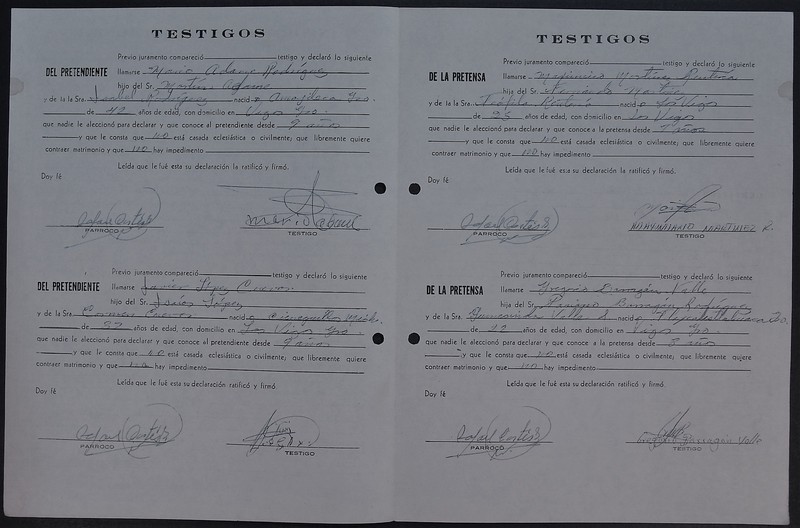 TESTIGOS
Previo juramento compareció testigo y declaró lo siguiente
DEL PRETENDIENTE llamarse Mario Adame Rodríguez
hijo del Sr. Martín Adame
y de la Sra. Isabel Rodríguez nacido
de 42 años de edad, con domicilio en
que nadie le aleccionó para declarar y que conoce al pretendiente desde 9 años
y que le consta que no está casada eclesiástica o civilmente; que libremente quiere
contraer matrimonio y que no hay impedimento
Leída que le fué esta su declaración la ratificó y firmó.
Doy fé
Rafael Cortés
PARROCO TESTIGO
Previo juramento compareció testigo y declaró lo siguiente
DEL PRETENDIENTE llamarse Javier López Cuevas
hijo del Sr. López
y de la Sra. Carmen Cuevas nacido
de 27 años de edad, con domicilio en
que nadie le aleccionó para declarar y que conoce al pretendiente desde 9 años
y que le consta que no está casada eclesiástica o civilmente; que libremente quiere
contraer matrimonio y que no hay impedimento
Leída que le fué esta su declaración ratificó y firmó.
Doy fé
Rafael Cortés
PARROCO TESTIGO
TESTIGOS
Previo juramento compareció testigo y declaró lo siguiente
DE LA PRETENSA llamarse Martínez
hijo del Sr. Martínez
y de la Sra. nacido
de 25 años de edad, con domicilio en
que nadie le aleccionó para declarar y que conoce a la pretensa desde 7 años
y que le consta que no está casada eclesiástica o civilmente; que libremente quiere
contraer matrimonio y que no hay impedimento
Leída que le fué esta su declaración la ratificó y firmó.
Doy fé
Rafael Cortés MARTINEZ R.
PARROCO TESTIGO
Previo juramento compareció testigo y declaró lo siguiente
DE LA PRETENSA llamarse Barragán Valle
hijo del Sr. Barragán Rodríguez
y de la Sra. Valle nacido
de 42 años de edad, con domicilio en
que nadie le aleccionó para declarar y que conoce a la pretensa desde 8 años
y que le consta que no está casada eclesiástica o civilmente; que libremente quiere
contraer matrimonio y que no hay impedimento
Leída que le fué esta su declaración la ratificó y firmó.
Doy fé
Rafael Cortés Barragán Valle
PARROCO TESTIGO